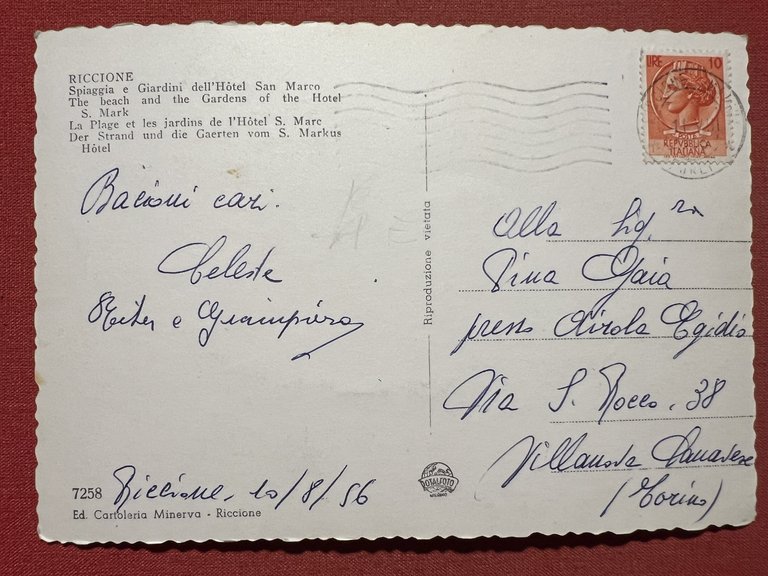 RICCIONE
Spiaggia e Giardini dell'Hôtel San Marco
The beach and the Gardens of the Hotel
S. Mark
La Plage et les jardins de l'Hôtel S. Marc
Der Strand und die Gaerten vom S. Markus
Hôtel
Bacioni cari.
Celeste
e Giampiero
7258
Riccione, 10/8/56
Ed. Cartoleria Minerva - Riccione
Riproduzione vietata
ROTALFOTO
MILANO
LIRE 10
POSTE
REPVBBLICA
ITALIANA
Alla Sig.ra
Pina Gaia
presso Airola Egidio
Via S. Rocco, 38
Villanova Canavese
(Torino)